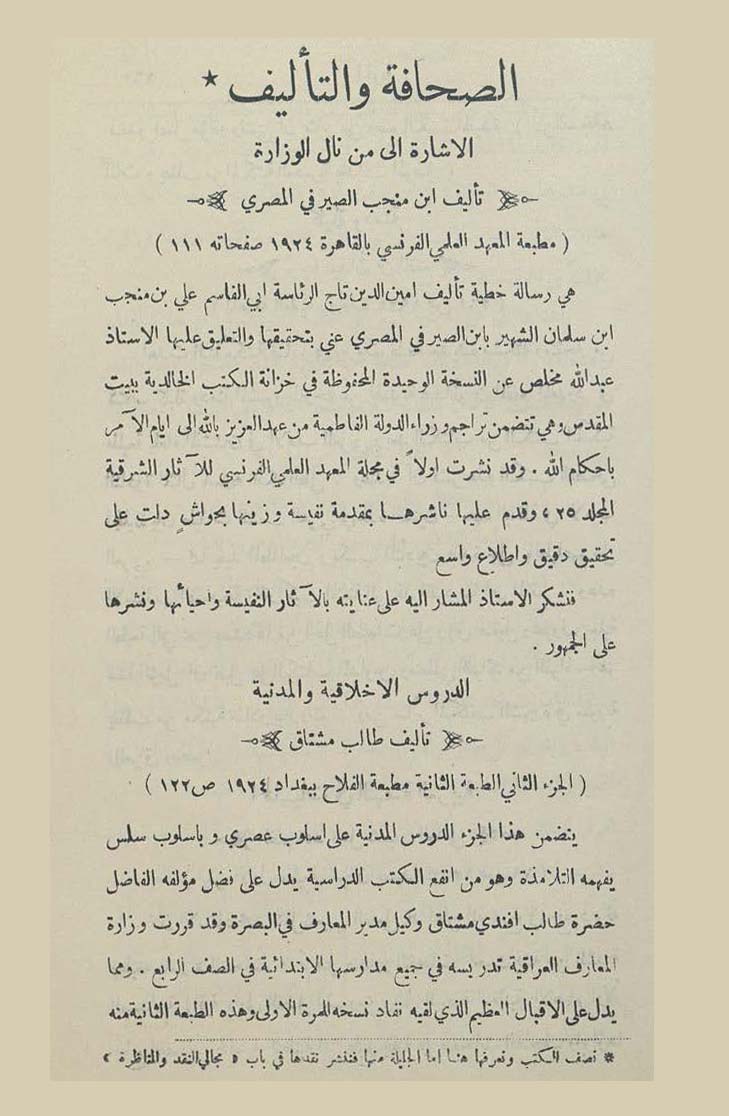 الصحافة والتأليف *
الاشارة الى من نال الوزارة
تأليف ابن منجب الصيرفي المصري
( مطبعة المعهد العلمي الفرنسي بالقاهرة ١٩٢٤ صفحاته ١١١ )
هي رسالة خطية تأليف امين الدين تاج الرئاسة ابي القاسم علي بن منجب
ابن سلمان الشهير بابن الصيرفي المصري عني بتحقيقها والتعليق عليها الاستاذ
عبدالله مخلص عن النسخة الوحيدة المحفوظة في خزانة الكتب الخالدية ببيت
المقدس وهي تتضمن تراجم وزراء الدولة الفاطمية من عهد العزيز بالله الى ايام الآمر
باحكام الله . وقد نشرت اولاً في مجلة المعهد العلمي الفرنسي للآثار الشرقية
المجلد ٢٥ ، وقدم عليها ناشرهـا بمقدمة نفيسة وزينها بحواشٍ دلت على
تحقيق دقيق واطلاع واسع
فنشكر الاستاذ المشار اليه على عنايته بالآثار النفيسة واحيائها ونشرها
على الجمهور .
الدروس الاخلاقية والمدنية
تأليف طالب مشتاق
( الجزء الثاني الطبعة الثانية مطبعة الفلاح ببغداد ١٩٢٤ ص ١٢٢ )
يتضمن هذا الجزء الدروس المدنية على اسلوب عصري و باسلوب سلس
يفهمه التلامذة وهو من انفع الكتب الدراسية يدل على فضل مؤلفه الفاضل
حضرة طالب افندي مشتاق وكيل مدير المعارف في البصرة وقد قررت وزارة
المعارف العراقية تدريسه في جميع مدارسها الابتدائية في الصف الرابع . ومما
يدل على الاقبال العظيم الذي لقيه نفاد نسخه للمرة الاولى وهذه الطبعة الثانية منه
* نصف الكتب ونعرفها هنا اما الجليلة منها فننشر نقدها في باب « مجالي النقد والمناظرة »